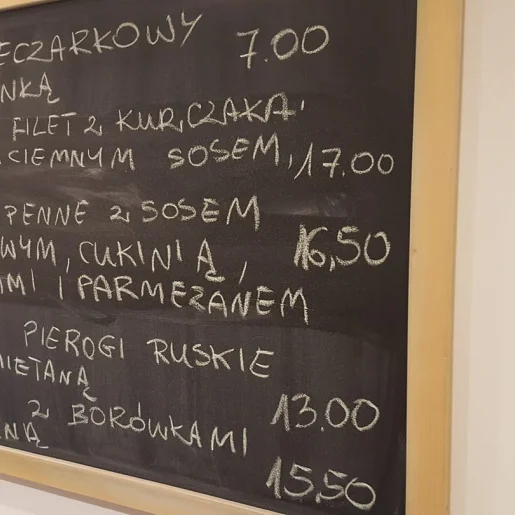 ECZARKOWY 7.00
NKĄ
FILET Z KURCZAKA
CIEMNYM SOSEM, 17.00
PENNE Z SOSEM
WYM, CUKINIĄ, 16,50
MI I PARMEZANEM
PIEROGI RUSKIE
IETANĄ 13.00
Z BORÓWKAMI
NĄ 15,50